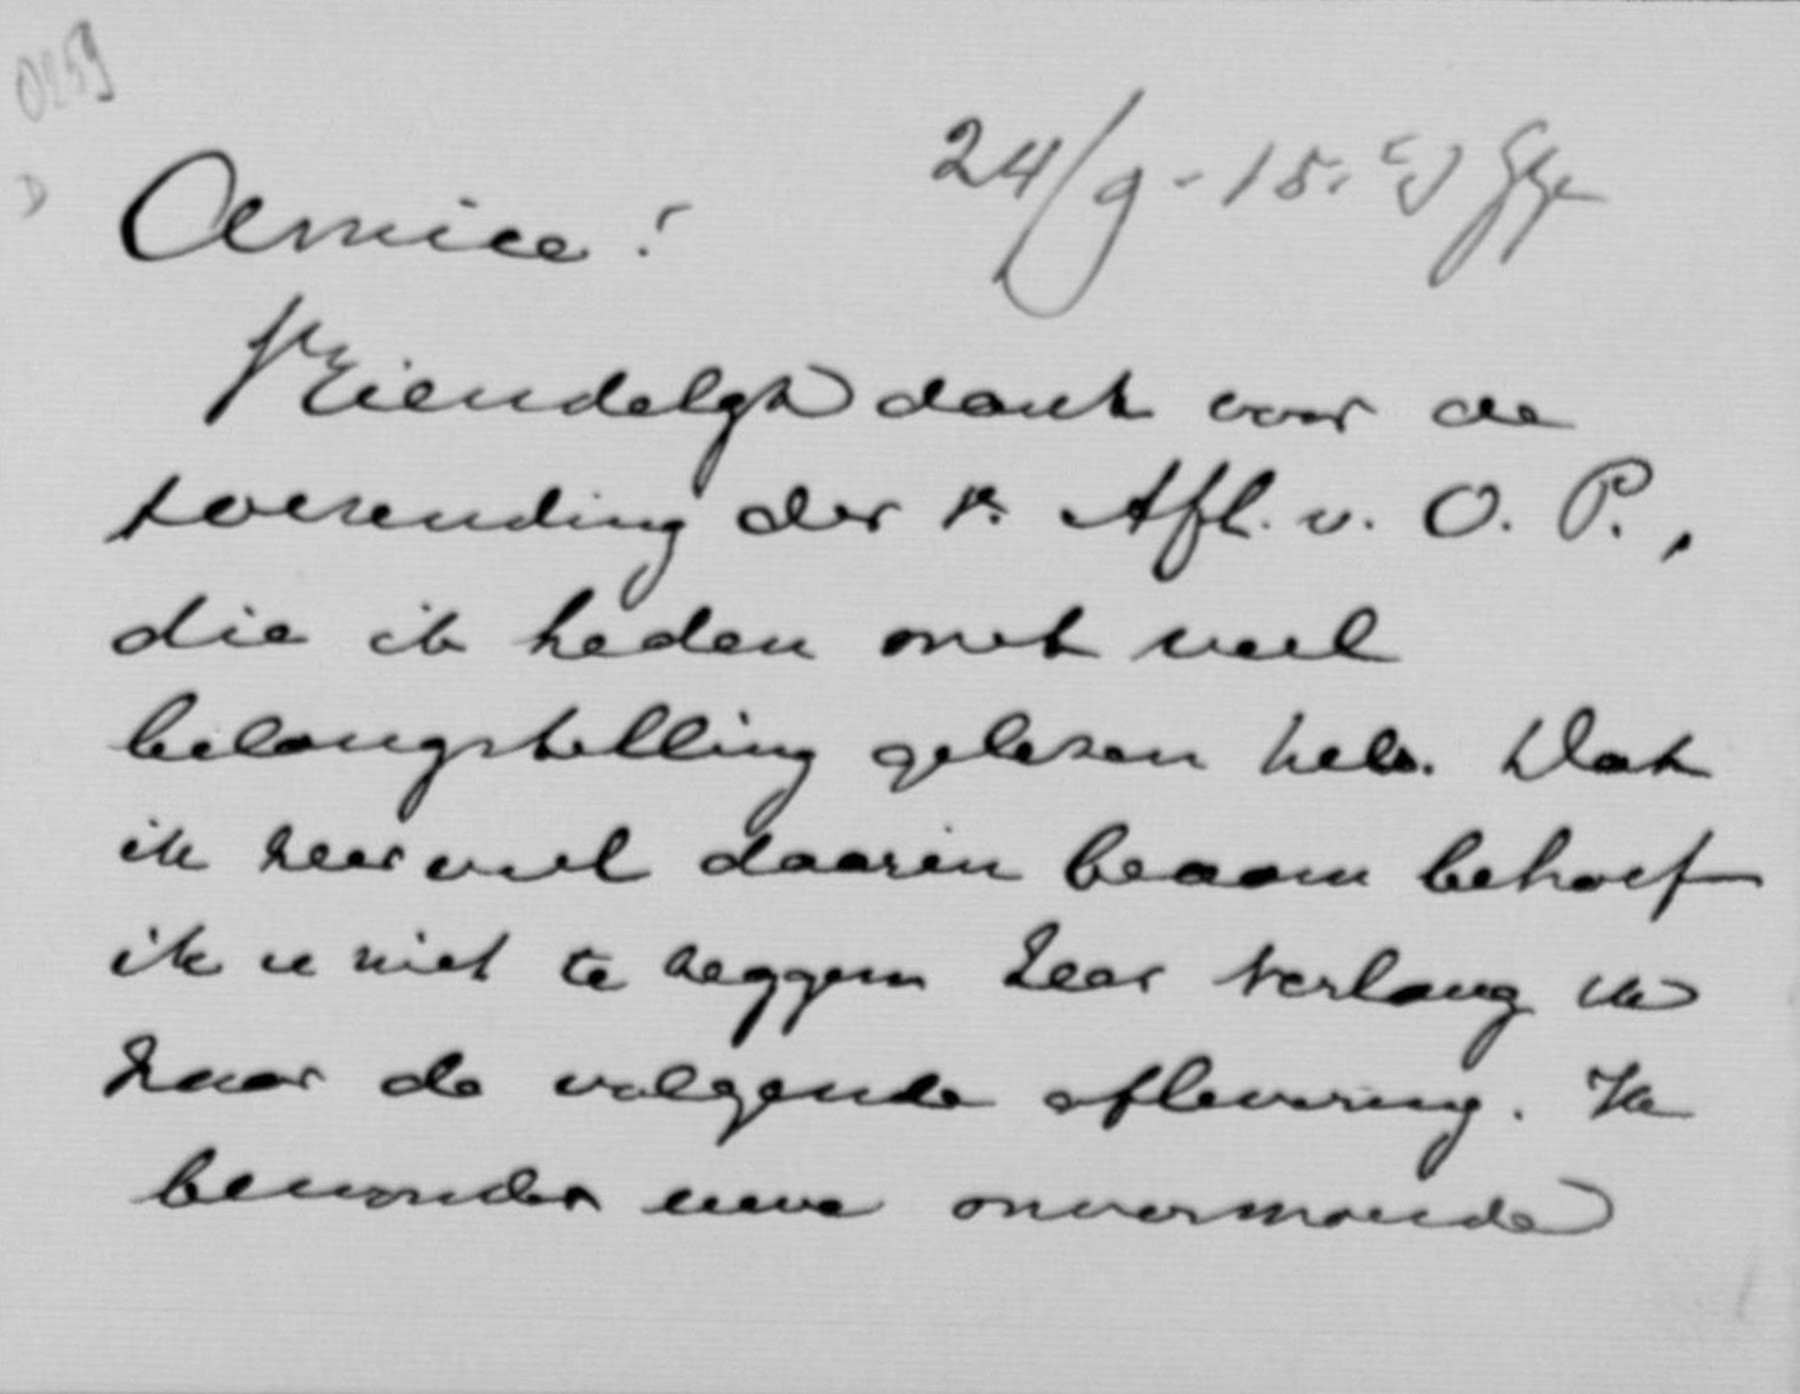 0259
24/9-15.
Amice!
Vriendelijk dank voor de
toezending der 1e Afl. v. O. P.,
die ik heden met veel
belangstelling gelezen heb. Dat
ik zeer veel daarin beaam behoef
ik u niet te zeggen Zeer verlang ik
naar de volgende aflevering. Ik
bewonder uwe onvermoeide